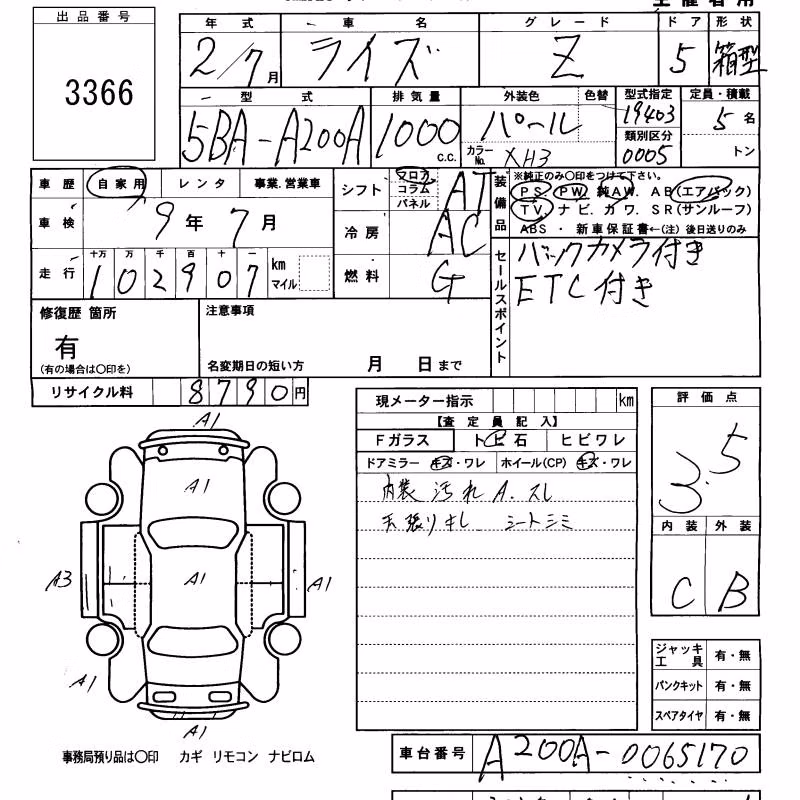 出品番号
3366
年式 車名 グレード ドア 形状
2/7月 ライズ Z 5 箱型
型式 排気量 外装色 色替 型式指定 定員・積載
5BA-A200A 1000 c.c. パール 19403 5名
カラーNo. XH3 類別区分 0005 トン
車歴 自家用 レンタ 事業.営業車
車検 9年7月
走行 十万 万 千 百 十 一
102907 km マイル
シフト フロア コラム パネル AT
冷房 AC
燃料 G
装備品
※純正のみ〇印をつけて下さい。
PS PW 純AW. AB(エアバック)
TV. ナビ. カワ. SR(サンルーフ)
ABS ・ 新車保証書←(注) 後日送りのみ
セールスポイント
バックカメラ付き
ETC付き
修復歴 箇所
有
(有の場合は〇印を)
注意事項
名変期日の短い方 月 日まで
リサイクル料 8790円
現メーター指示 km
【査定員記入】
Fガラス トビ石 ヒビワレ
ドアミラー キズ・ワレ ホイール(CP) キズ・ワレ
内装 汚れ A.スレ
天張り キレ シートシミ
評価点
3.5
内装 外装
C B
A1
A1
A3 A1 A1
A1
A1
ジャッキ工具 有・無
パンクキット 有・無
スペアタイヤ 有・無
事務局預り品は〇印 カギ リモコン ナビロム
車台番号 A200A-0065170